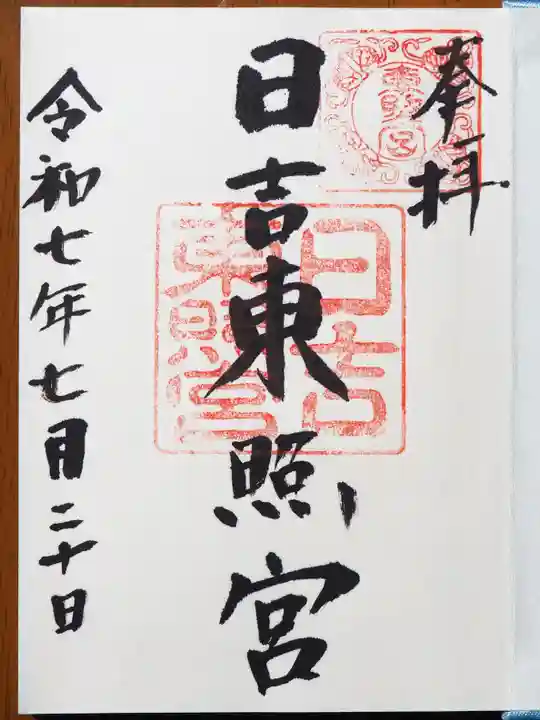 奉拝
日吉東照宮
令和七年七月二十日
日吉
東照宮